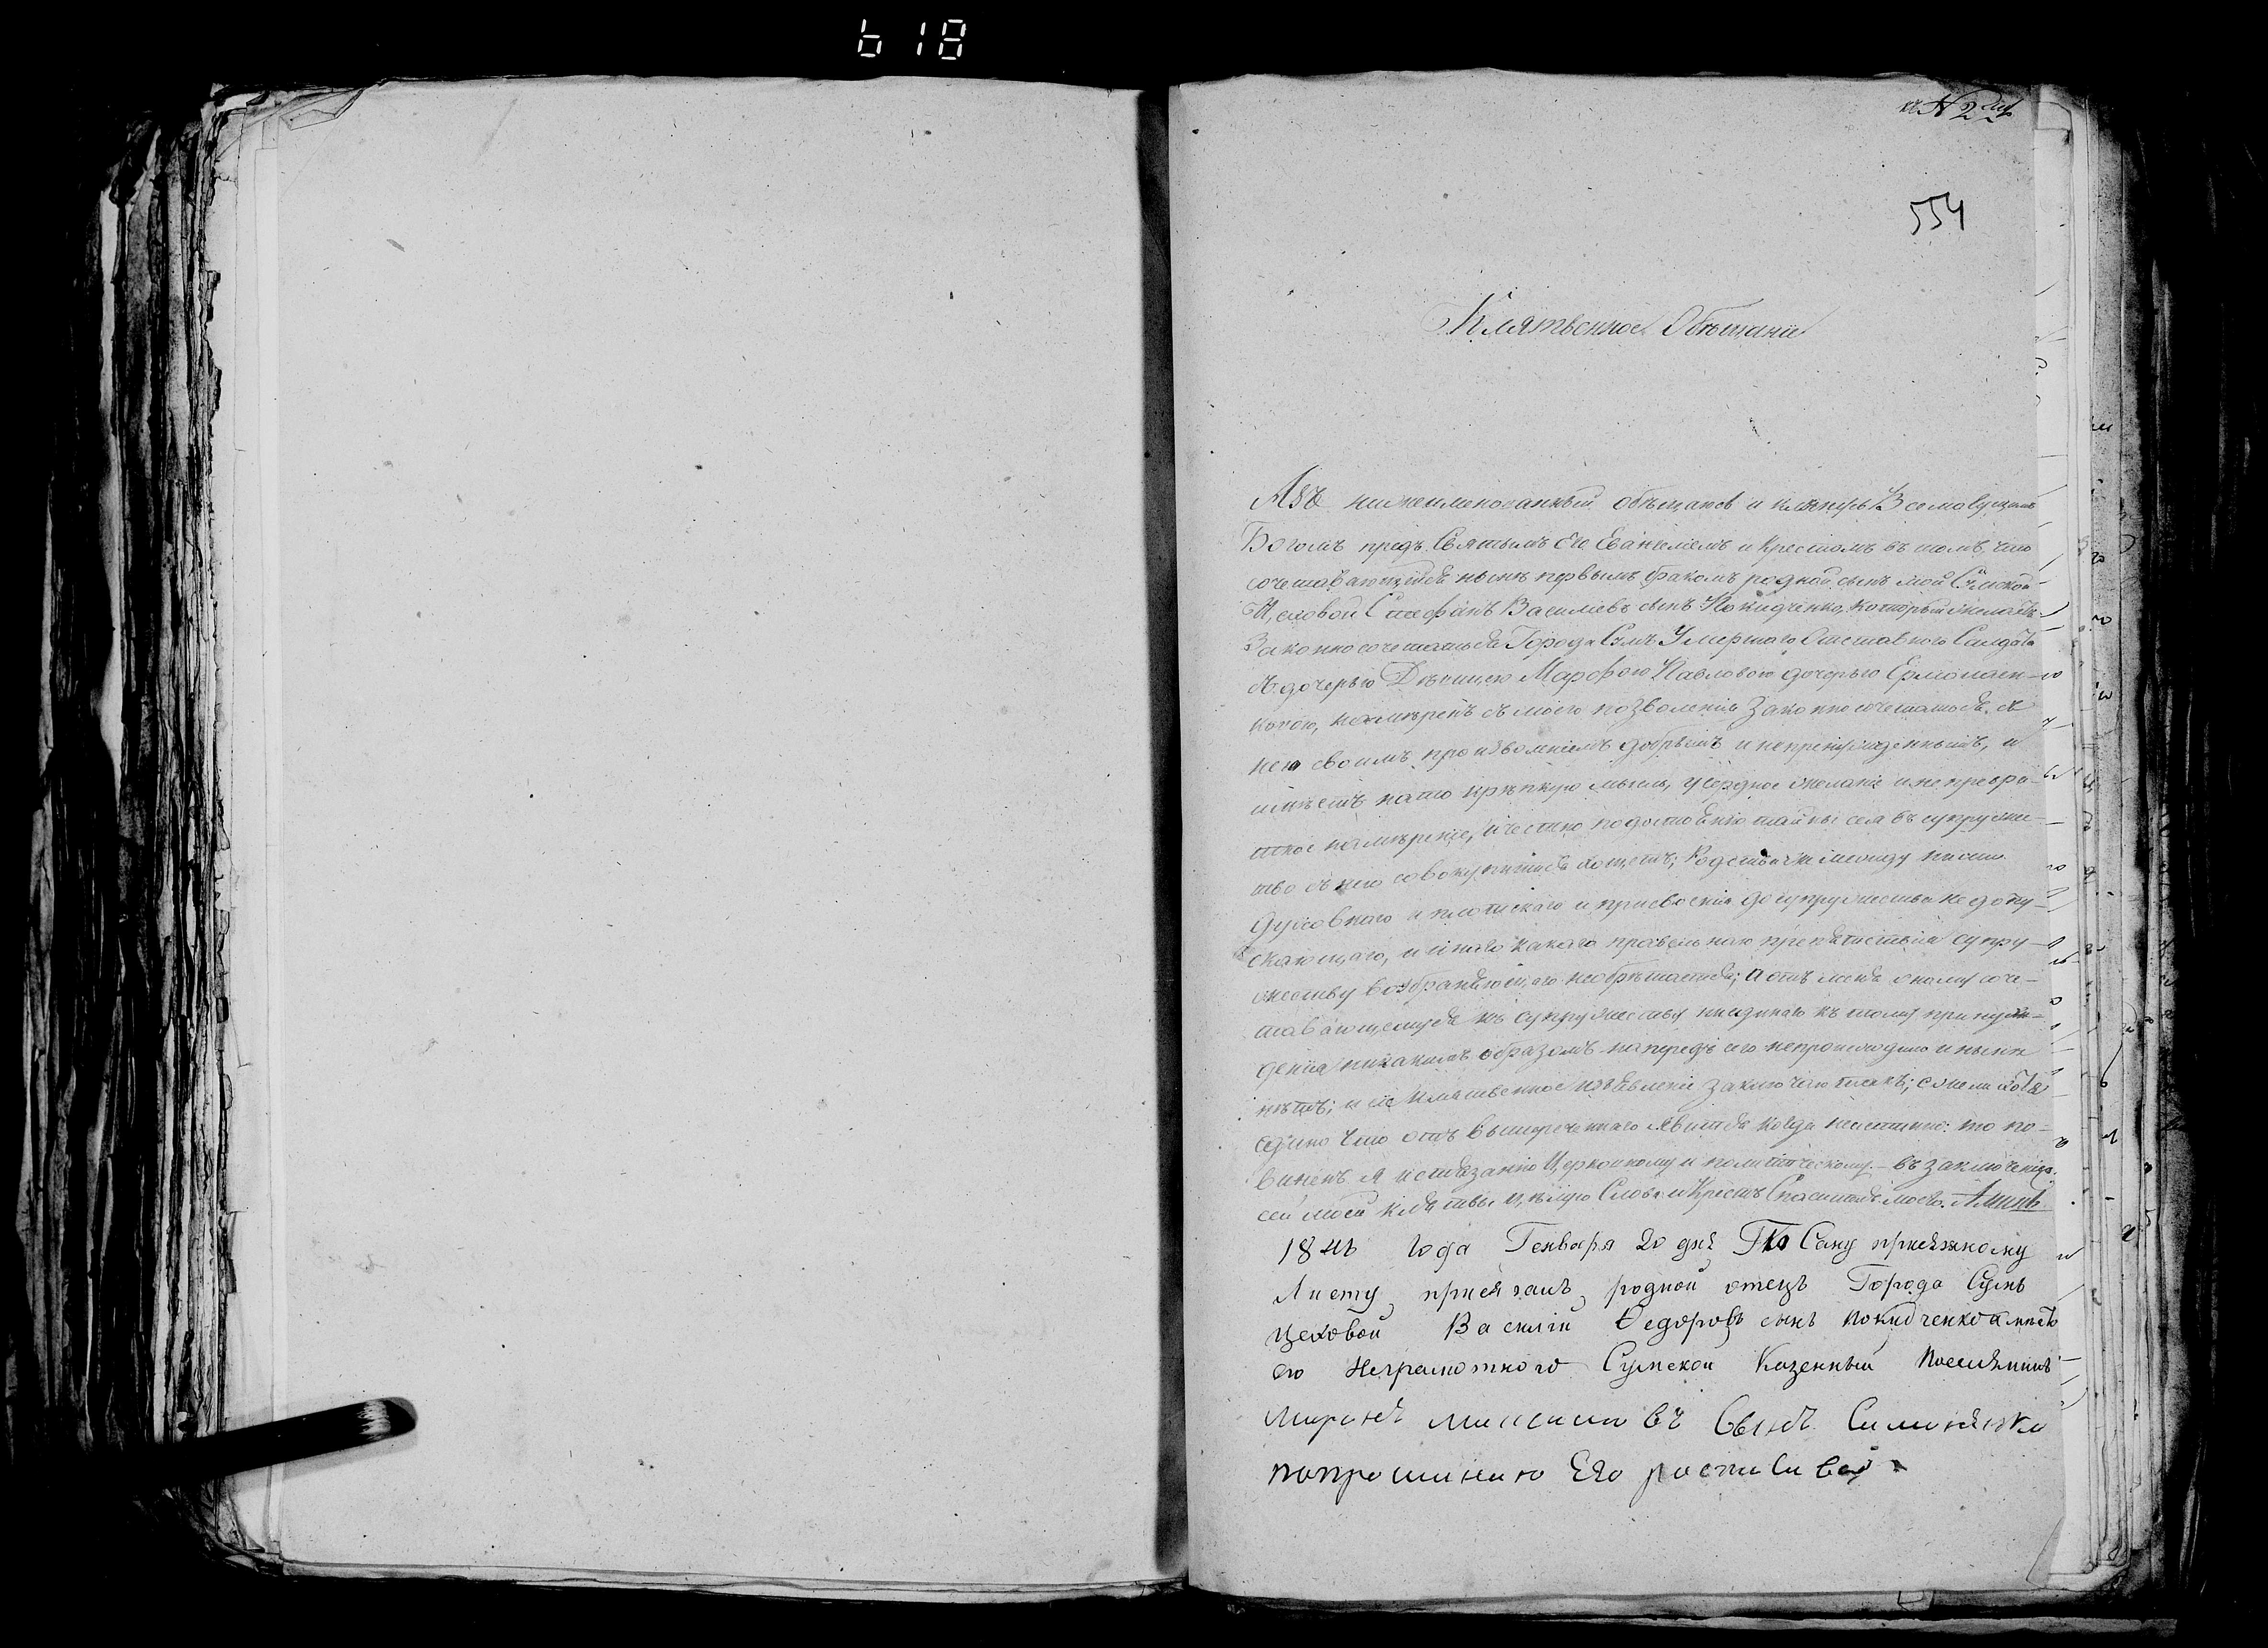 618
къ № 2му
554
Клятвенное Обѣщаніе
Азъ нижеименованный обѣщаюсь и клянусь Всемогущимъ
Богомъ предъ Святымъ Его Евангеліемъ и Крестомъ въ томъ, что
сочетавающійся нынѣ первымъ бракомъ родной сынъ мой Сумской
Цеховой Стефанъ Василіевъ сынъ Покидченко, который желаетъ
Законно сочетаться Города Сумъ Умершаго Отставнаго Салдата
съ дочерью Дѣвицею Марфою Павловою дочерью Ермолаен-
ковою, намѣренъ съ моего позволенія законно сочетаться съ
нею своимъ произволеніемъ добрымъ и непринужденнымъ, и
имѣетъ на то крѣпкую мысль, усердное желаніе и непревра-
тное намѣреніе, и честно по достоянію тайны сея въ супруже-
тво съ нею совокупитися хощетъ; Родства же между ними
духовнаго и плотскаго и присвоенія до супружества не допу-
скающаго, и инаго какого правильнаго препятствія супру-
жеству возбраняющаго необрѣтается; а отъ меня оному соче-
тавающемуся къ супружеству ниединаго къ тому принуж-
денія никакимъ образомъ напередъ сего непроисходило и нынѣ
нѣтъ; и сіе клятвенное изъявленіе заключаю такъ; ежели хотя
едино что отъ вышереченнаго явится когда неистинно: то по-
виненъ я истязанію Церковному и политическому. – въ заключеніе
сей моей клятвы цѣлую Слова и Крестъ Спасителя моего. Аминь.
года Генваря 20 дня Ко Сему присяжному
Листу присягалъ родной отецъ Города Сумъ
цеховой Василій Ѳедоровъ сынъ Покидченко а вмѣсто
его Неграмотного Сумской Казенный Поселянинъ
Сынъ
попрошинию Его росписался